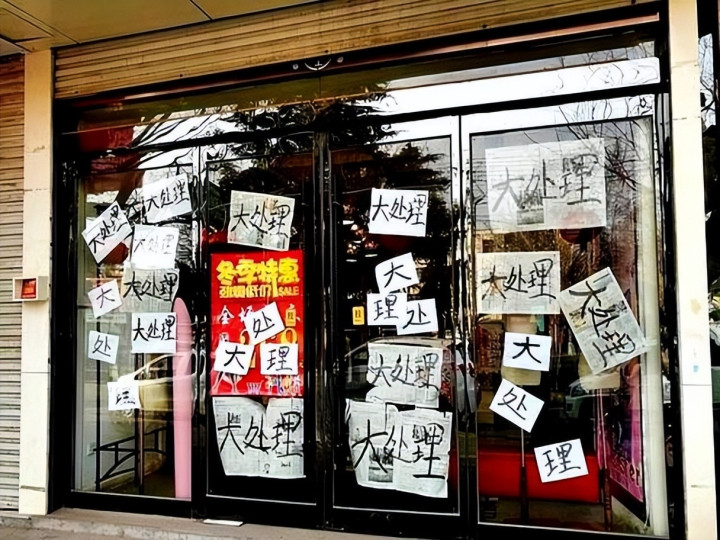 大处理
大处理
大处理
大
大处理
处
大处理
理
大处理
冬季特惠
劲爆低价 SALE
全场
处
大
理
大处理
大处理
大
理
处
大处理
大处理
大处理
大处理
大处理
大
处
理